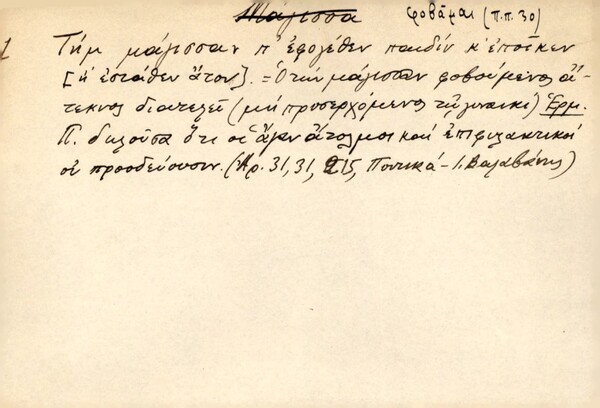 Μάγισσα φοβᾶμαι (π.π. 30)
1 Τὴμ μάγισσαν π' ἐφογέθεν παιδὶν κ' ἐποῖκεν
[κ' ἐστάθεν ἄτον]. = Ὁ τὴν μάγισσαν φοβούμενος ἄ-
τεκνος διατελεῖ (μὴ προσερχόμενος τῇ γυναικί) Ἑρμ.
Π. δηλοῦσα ὅτι οἱ ἄγαν ἄτολμοι καὶ ἐπιφυλακτικοὶ
οὐ προοδεύουσιν. (Ἀρ. 31, 31, 215, Ποντικά - Ι. Βαλαβάνης)